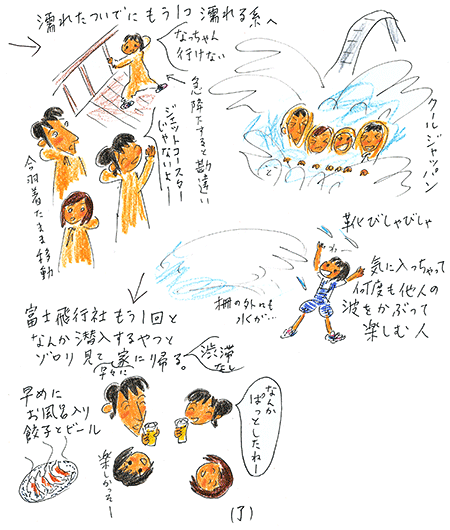 濡れたついでに もう1つ 濡れる系へ
なっちゃん
行けない
急降下すると勘違い
ジェットコースター
じゃないよー
合羽着たまま移動
クールジャッパン
靴びしゃびしゃ
気に入っちゃって
何度も他人の
波をかぶって
楽しむ人
柵の外にも
水が…
富士飛行社 もう1回と
なんか潜入するやつと
ゾロリ 見て 早々に 家に帰る。
渋滞
なし
早めに
お風呂入り
餃子とビール
なんか
ぱっとしたねー
楽しかっそー
(了)